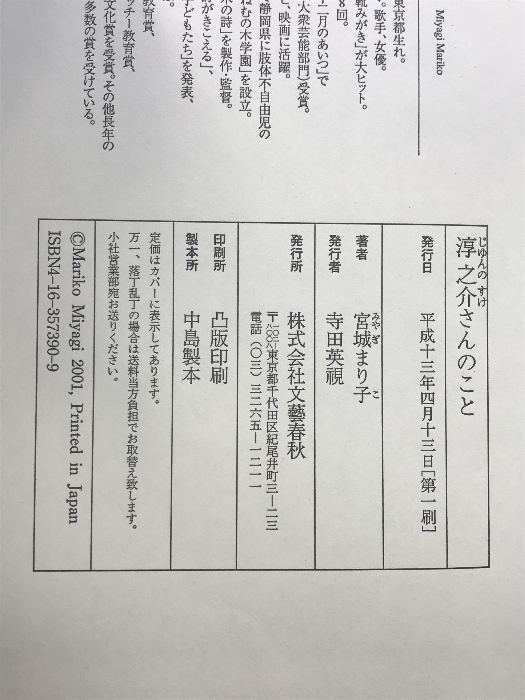 Miyagi Mariko
東京都生れ。
。歌手、女優。
靴みがき」が大ヒット。
8回。
十二月のあいつ」で
大衆芸能部門)受賞。
、映画に活躍。
静岡県に肢体不自由児の
ねむの木学園」を設立。
木の詩」を製作・監督。
詩がきこえる」、
子どもたち」を発表、
教育賞、
ッチー教育賞、
文化賞を受賞。その他長年の
多数の賞を受けている。
淳之介さんのこと
じゆんのすけ
発行日 平成十三年四月十三日[第一刷]
著者 宮城まり子
みやぎ こ
発行者 寺田英視
発行所 株式会社文藝春秋
〒一〇二―八〇〇八 東京都千代田区紀尾井町三―二三
電話(〇三)三二六五―一二一一
印刷所 凸版印刷
製本所 中島製本
定価はカバーに表示してあります。
万一、落丁乱丁の場合は送料当方負担でお取替え致します。
小社営業部宛お送りください。
©Mariko Miyagi 2001, Printed in Japan
ISBN4-16-357390-9